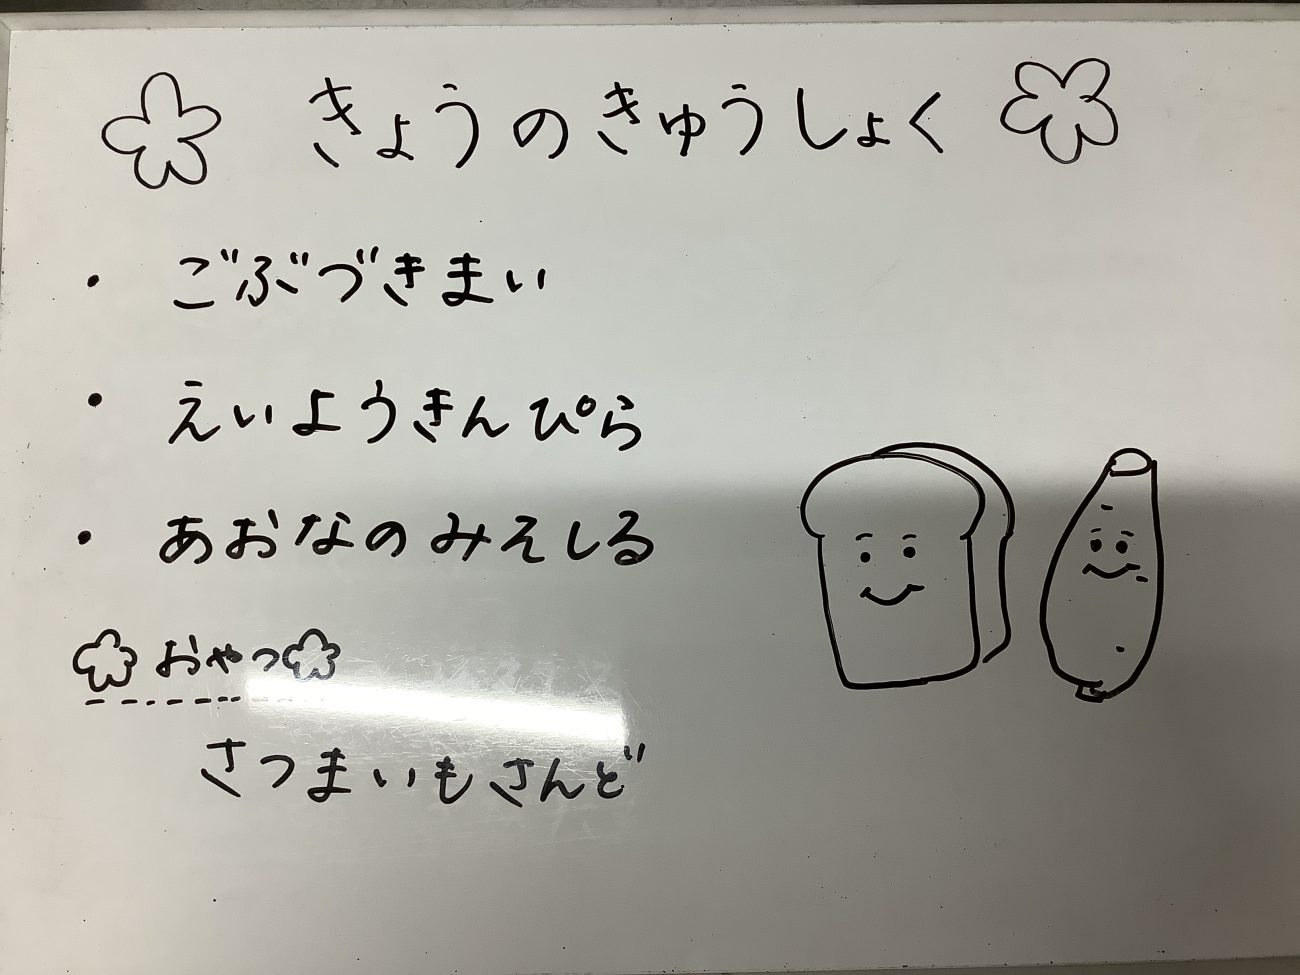 きょうのきゅうしょく
・ごぶづきまい
・えいようきんぴら
・あおなのみそしる
おやつ
さつまいもさんど